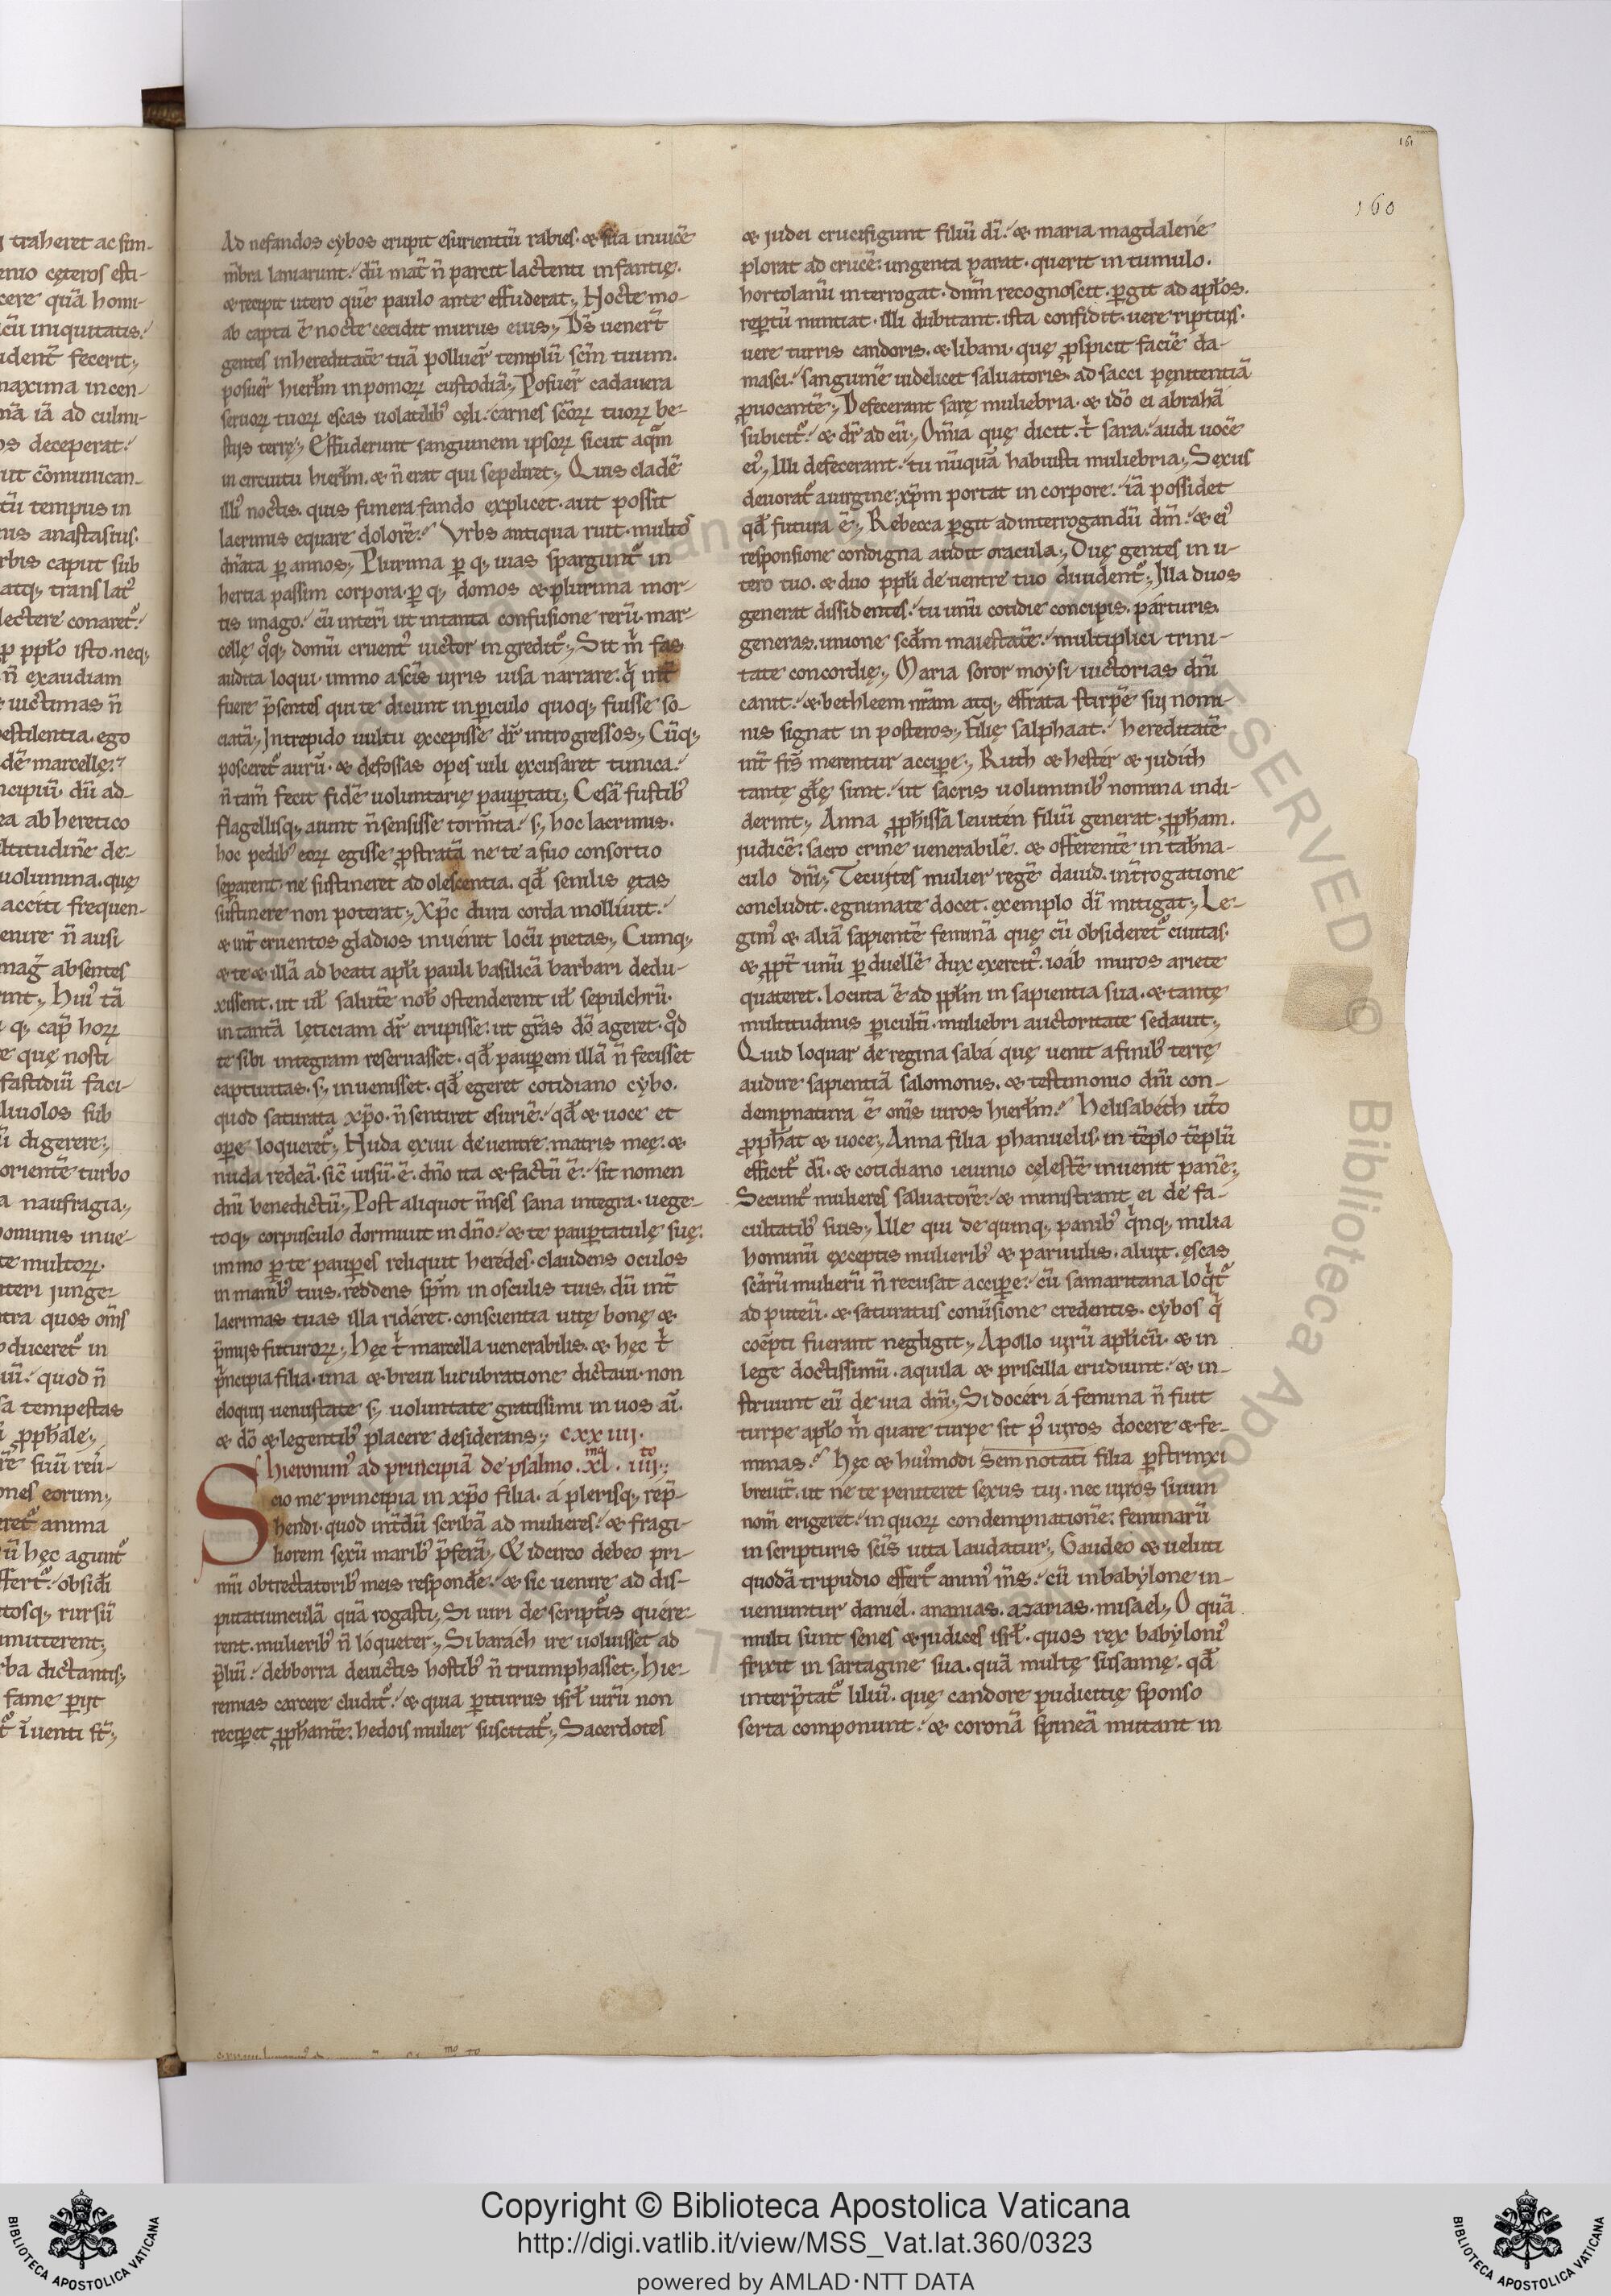 161
160
Ad nefandos cybos erupit esurientiū rabies. & sua inuicē
m̄bra laniarunt. dū mat̄ n̄ parcit lactenti infantię.
& recipit utero quē paulo ante effuderat. Hocte mo-
ab capta ē nocte cecidit murus eius. D̄s uener̄t
gentes in hereditatē tuā polluer̄ templū sc̄m tuum.
posuer̄ hierl̄m in pomoꝝ custodiā. Posuer̄ cadauera
seruoꝝ tuoꝝ escas uolatilib; cęli. carnes sc̄oꝝ tuoꝝ be-
stijs terrę. Effuderunt sanguinem ipsoꝝ sicut aq̄m
in circuitu hierl̄m. & n̄ erat qui sepeliret. Quis cladē
illi᾽ noctis. quis funera fando explicet. aut possit
lacrimis equare dolorē. Vrbs antiqua ruit. multos
dn̄ata ꝑ annos. Plurima ꝑ q; uias spargunt᾽ in
hertia passim corpora. ꝑ q; domos & plurima mor-
tis imago. cū interī ut in tanta confusione rerū. mar-
cellę q̊q; domū cruent᾽ uictor ingredit᾽. Sit m̄ fas
audita loqui. immo a sc̄is uiris uisa narrare. q̄ int̄
fuere p̄sentes qui te dicunt in ꝑiculo quoq; fuisse so-
ciatā. Intrepido uultu excepisse dr̄ introgressos. Cūq;
posceret᾽ aurū. & defossas opes uili excusaret tunica.
n̄ tam̄ fecit fidē uoluntarię pauꝑtati. Cesā fustib;
flagellisq; aiunt n̄ sensisse torm̄ta. s; hoc lacrimis.
hoc pedib; eoꝝ egisse ꝓstratā ne te a suo consortio
seꝑarent. ne sustineret adolescentia. qd̄ senilis ętas
sustinere non poterat. Xp̄c dura corda molliuit.
& int̄ cruentos gladios inuenit locū pietas. Cumq;
& te & illā ad beati apl̄i pauli basilicā barbari dedu-
xissent. ut ul̄ salutē nob̄ ostenderent ul̄ sepulchrū.
in tantā lęticiam dr̄ erupisse. ut gr̄as dō ageret. q̊d
te sibi integram reseruasset. qd̄ pauꝑem illā n̄ fecisset
captiuitas. s; inuenisset. qd̄ egeret cotidiano cybo.
quod saturata xp̄o. n̄ sentiret esuriē. qd̄ & uoce et
oꝑe loqueret᾽. Huda exiui de uentre matris meę. &
nuda redeā. sic̄ uisū. ē. dn̄o ita & factū ē. sit nomen
dn̄i benedictū. Post aliquot m̄ses sana integra. uege-
toq; corpusculo dormiuit in dn̄o. & te pauꝑtatulę suę.
immo ꝑ te pauꝑes reliquit heredes. claudens oculos
in manib; tuis. reddens sp̄m in osculis tuis. dū int̄
lacrimas tuas illa rideret. conscientia uitę bonę &
p̄mijs futuroꝝ. Hęc t̄ marcella uenerabilis. & hęc t̄
p̄ncipia filia. una & breui lucubratione dictaui. non
eloquij uenustate s; uoluntate gratissimi in uos aī.
& dō & legentib; placere desiderans. cxxiiij.
hieronim᾽ ad principiā de psalmo .xl.ᵐᵒ iiij.ᵗᵒ
Scio me principia in xp̄o filia. á plerisq; rep̄-
hendi. quod int̄dū scribā ad mulieres. & fragi-
liorem sexū marib; p̄ferā. & idcirco debeo pri-
mū obtrectatorib; meis respondē. & sic uenire ad dis-
putatiunculā quā rogasti. Si uiri de script̄is quére-
rent. mulierib; n̄ lóqueter. Si barách ire uoluisset ad
p̄liū. debborra deuictis hostib; n̄ triumphasset. Hie-
remias carcere cludit᾽. & quia ꝑiturus isrl̄ uirū non
reciꝑet ꝓph̄antē. hedois mulier suscitat᾽. Sacerdotes
& judei crucifigunt filiū dī. & maria magdalené
plorat ad crucē. ungenta parat. querit in tumulo.
hortolanū interrogat. dn̄m recognoscit. ꝑgit ad apl̄os.
reꝑtū nuntiat. illi dubitant. ista confidit. uere riptus.
uere turris candoris. & libani. quę ꝓspicit faciē da-
masci. sanguinē uidelicet saluatoris. ad sacci pęnitentiā
ꝓuocantē. Defecerant sarę muliebria. & idō ei abrahā
subicit᾽. & dr̄ ad eū. Om̄ia quę dicit. t̄ sara. audi uocē
ei᾽. Illi defecerant. tu nūquā habuisti muliebria. Sexus
deuorat᾽ a uirgine. xp̄m portat in corpore. iā possidet
qd̄ futura ē. Rebecca ꝑgit ad interrogandū dm̄. & ei᾽
responsione condigna audit oracula. Duę gentes in u-
tero tuo. & duo ppl̄i de uentre tuo diuident᾽. Illa duos
generat dissidentes. tu unū cotidie concipis. párturis.
generas. unione scd̄m maiestatē. multiplici trini-
tate concordię. Maria soror moysi uictorias dn̄i
canit. & bethleem nr̄am atq; effrata stirpē sij nomi-
nis signat in posteros. Filię salphaat. hereditatē
int̄ frs̄ merentur acciꝑe. Ruth & hester & judith
tantę gl̄ę sunt. ut sacris uoluminib; nomina indi-
derint. Anna ꝓph̄issa leuitén filiū generat. ꝓph̄am.
judicē. sacro crine uenerabilē. & offerentē in tab̄na-
culo dn̄i. Tecuites mulier regē dauid. int̄rogatione
concludit. egnimate docet. exemplo dī mitigat. Le-
gim᾽ & aliā sapientē feminā quę cū obsideret᾽ ciuitas.
& ꝓpt̄ unū ꝑduellē dux exercit᾽. ioáb muros ariete
quateret. locuta ē ad ppl̄m in sapientia sua. & tantę
multitudinis ꝑiculū. muliebri auctoritate sedauit.
Quid loquar de regina sabá quę uenit a finib; terrę
audire sapientiā salomonis. & testimonio dn̄i con-
dempnatura ē om̄s uiros hierl̄m. Helisabéth ut̊o
ꝓph̄at & uoce. Anna filia phanuelis. in tēplo tēplū
efficit᾽ dī. & cotidiano ieiunio cęlestē inuenit panē.
Secunt᾽ mulieres saluatorē. & ministrant ei de fa-
cultatib; suis. Ille qui de quinq; panib; q̄nq; milia
hominū exceptis mulierib; & paruulis. aluit. escas
sc̄arū mulierū n̄ recusat acciꝑe. cū samaritana loq̄t᾽
ad puteū. & saturatus conūsione credentis. cybos q̄
coēpti fuerant negligit. Apollo uirū apl̄icū. & in
lege doctissimū. aquila & priscilla erudiunt. & in-
struunt eū de uia dn̄i. Si docéri á femina n̄ fuit
turpe apl̄o m̄ quare turpe sit p̊ uiros docere & fe-
minas. Hęc & hui᾽modi semnotati filia ꝑstrinxi
breuit̄. ut ne te peniteret sexus tui. nec uiros suum
nom̄ erigeret. in quoꝝ condempnationē. feminarū
in scripturis sc̄is uita laudatur. Gaudeo & ueluti
quodā tripudio effert᾽ anim᾽ m̄s. cū in babylone in-
uenuntur daniél. ananias. azarias. misael. O quā
multi sunt senes & judices isrl̄. quos rex babylonī᾽
frixit in sartagine sua. quā multę susannę. qd̄
interp̄tat᾽ liliū. quę candore pudicitię sponso
serta componunt. & coronā spineā mutant in
Copyright © Biblioteca Apostolica Vaticana
http://digi.vatlib.it/view/MSS_Vat.lat.360/0323
powered by AMLAD·NTT DATA
BIBLIOTECA APOSTOLICA VATICANA
BIBLIOTECA APOSTOLICA VATICANA